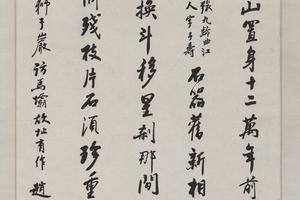 山置身十二萬年前
張九齡曲江
人字子壽
石器舊新相
換斗移星剎那間
殘枝片石須珍重
獅子巖訪馬壩故址有作 趙